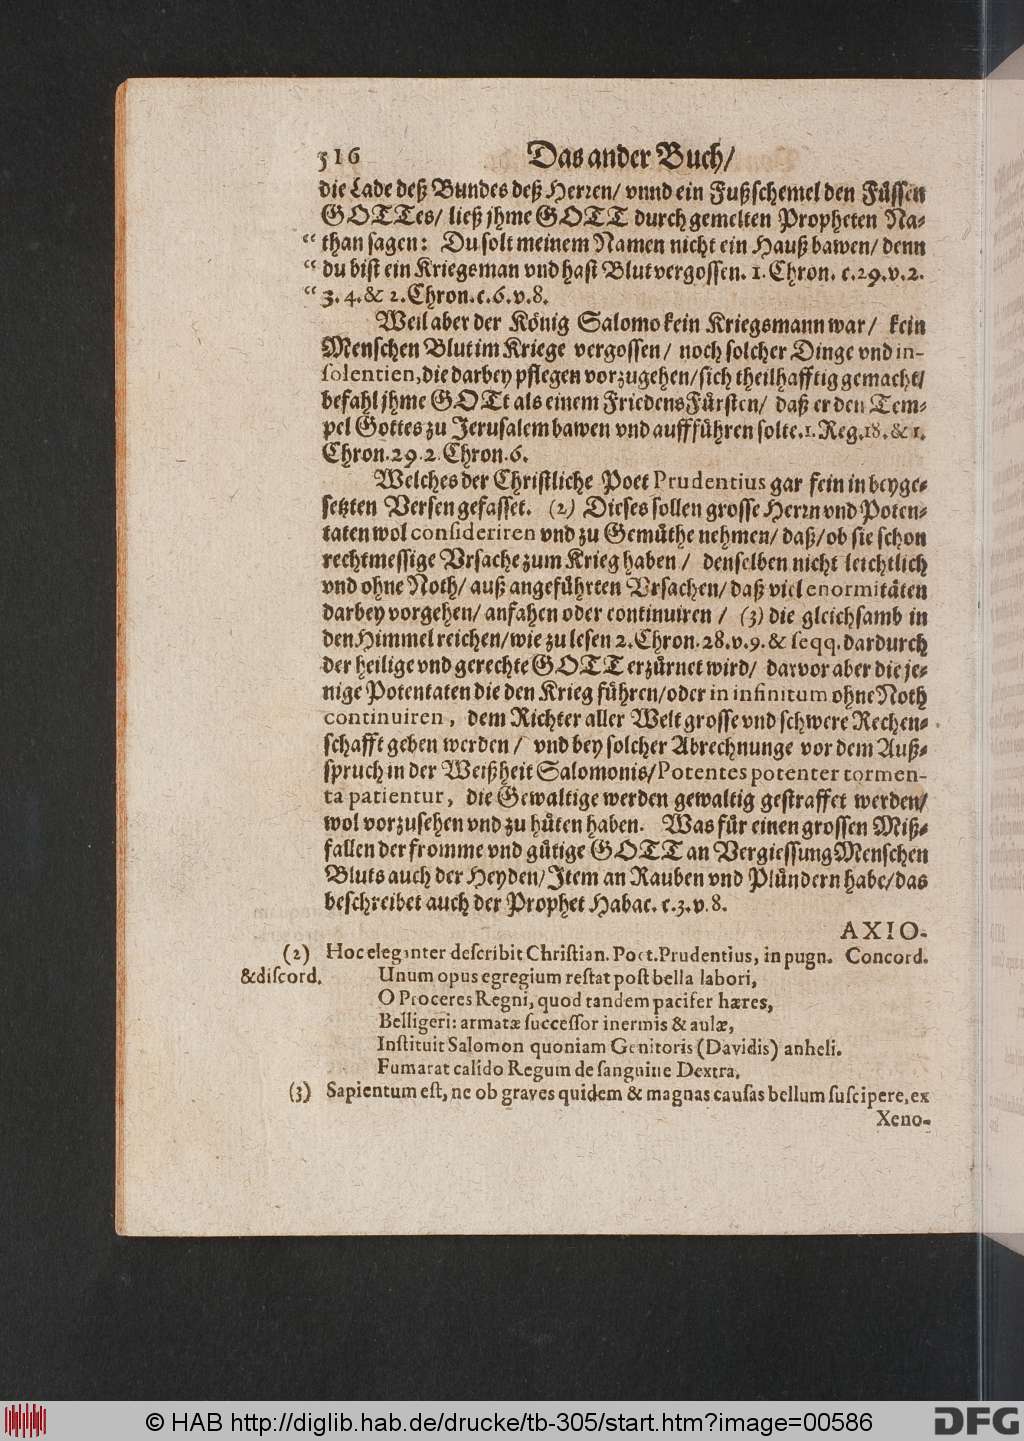 516 Das ander Buch/
die Lade deß Bundes deß Herren/ vnnd ein Fußschemel den Füssen
GOTTes/ ließ jhme GOTT durch gemelten Propheten Na-
“ than sagen: Du solt meinem Namen nicht ein Hauß bawen/ denn
“ du bist ein Kriegsman vnd hast Blut vergossen. 1. Chron. c.29.v.2.
“ 3. 4. & 2. Chron. c. 6. v. 8.
Weil aber der König Salomo kein Kriegsmann war/ kein
Menschen Blut im Kriege vergossen/ noch solcher Dinge vnd in-
solentien, die darbey pflegen vorzugehen/ sich theilhafftig gemacht/
befahl jhme GOTt als einem FriedensFürsten/ daß er den Tem-
pel Gottes zu Jerusalem bawen vnd auffführen solte. 1. Reg. 18. & 1.
Chron. 29. 2. Chron. 6.
Welches der Christliche Poet Prudentius gar fein in beyge-
setzten Versen gefasset. (2) Dieses sollen grosse Herrn vnd Poten-
taten wol consideriren vnd zu Gemüthe nehmen/ daß/ ob sie schon
rechtmessige Vrsache zum Krieg haben/ denselben nicht leichtlich
vnd ohne Noth/ auß angeführten Vrsachen/ daß viel enormitäten
darbey vorgehen/ anfahen oder continuiren / (3) die gleichsamb in
den Himmel reichen/ wie zu lesen 2. Chron. 28. v. 9. & seqq. dardurch
der heilige vnd gerechte GOTT erzürnet wird/ darvor aber die je-
nige Potentaten die den Krieg führen/ oder in infinitum ohne Noth
continuiren, dem Richter aller Welt grosse vnd schwere Rechen-
schafft geben werden/ vnd bey solcher Abrechnunge vor dem Auß-
spruch in der Weißheit Salomonis/ Potentes potenter tormen-
ta patientur, die Gewaltige werden gewaltig gestraffet werden/
wol vorzusehen vnd zu hüten haben. Was für einen grossen Miß-
fallen der fromme vnd gütige GOTT an Vergiessung Menschen
Bluts auch der Heyden/ Item an Rauben vnd Plündern habe/ das
beschreibet auch der Prophet Habac. c. 3. v. 8.
AXIO-
(2) Hoc eleganter describit Christian. Poet. Prudentius, in pugn. Concord.
& discord. Unum opus egregium restat post bella labori,
O Proceres Regni, quod tandem pacifer hæres,
Belligeri: armatæ successor inermis & aulæ,
Instituit Salomon quoniam Genitoris (Davidis) anheli.
Fumarat calido Regum de sanguine Dextra.
(3) Sapientum est, ne ob graves quidem & magnas causas bellum suscipere, ex
Xeno-
© HAB http://diglib.hab.de/drucke/tb-305/start.htm?image=00586
DFG